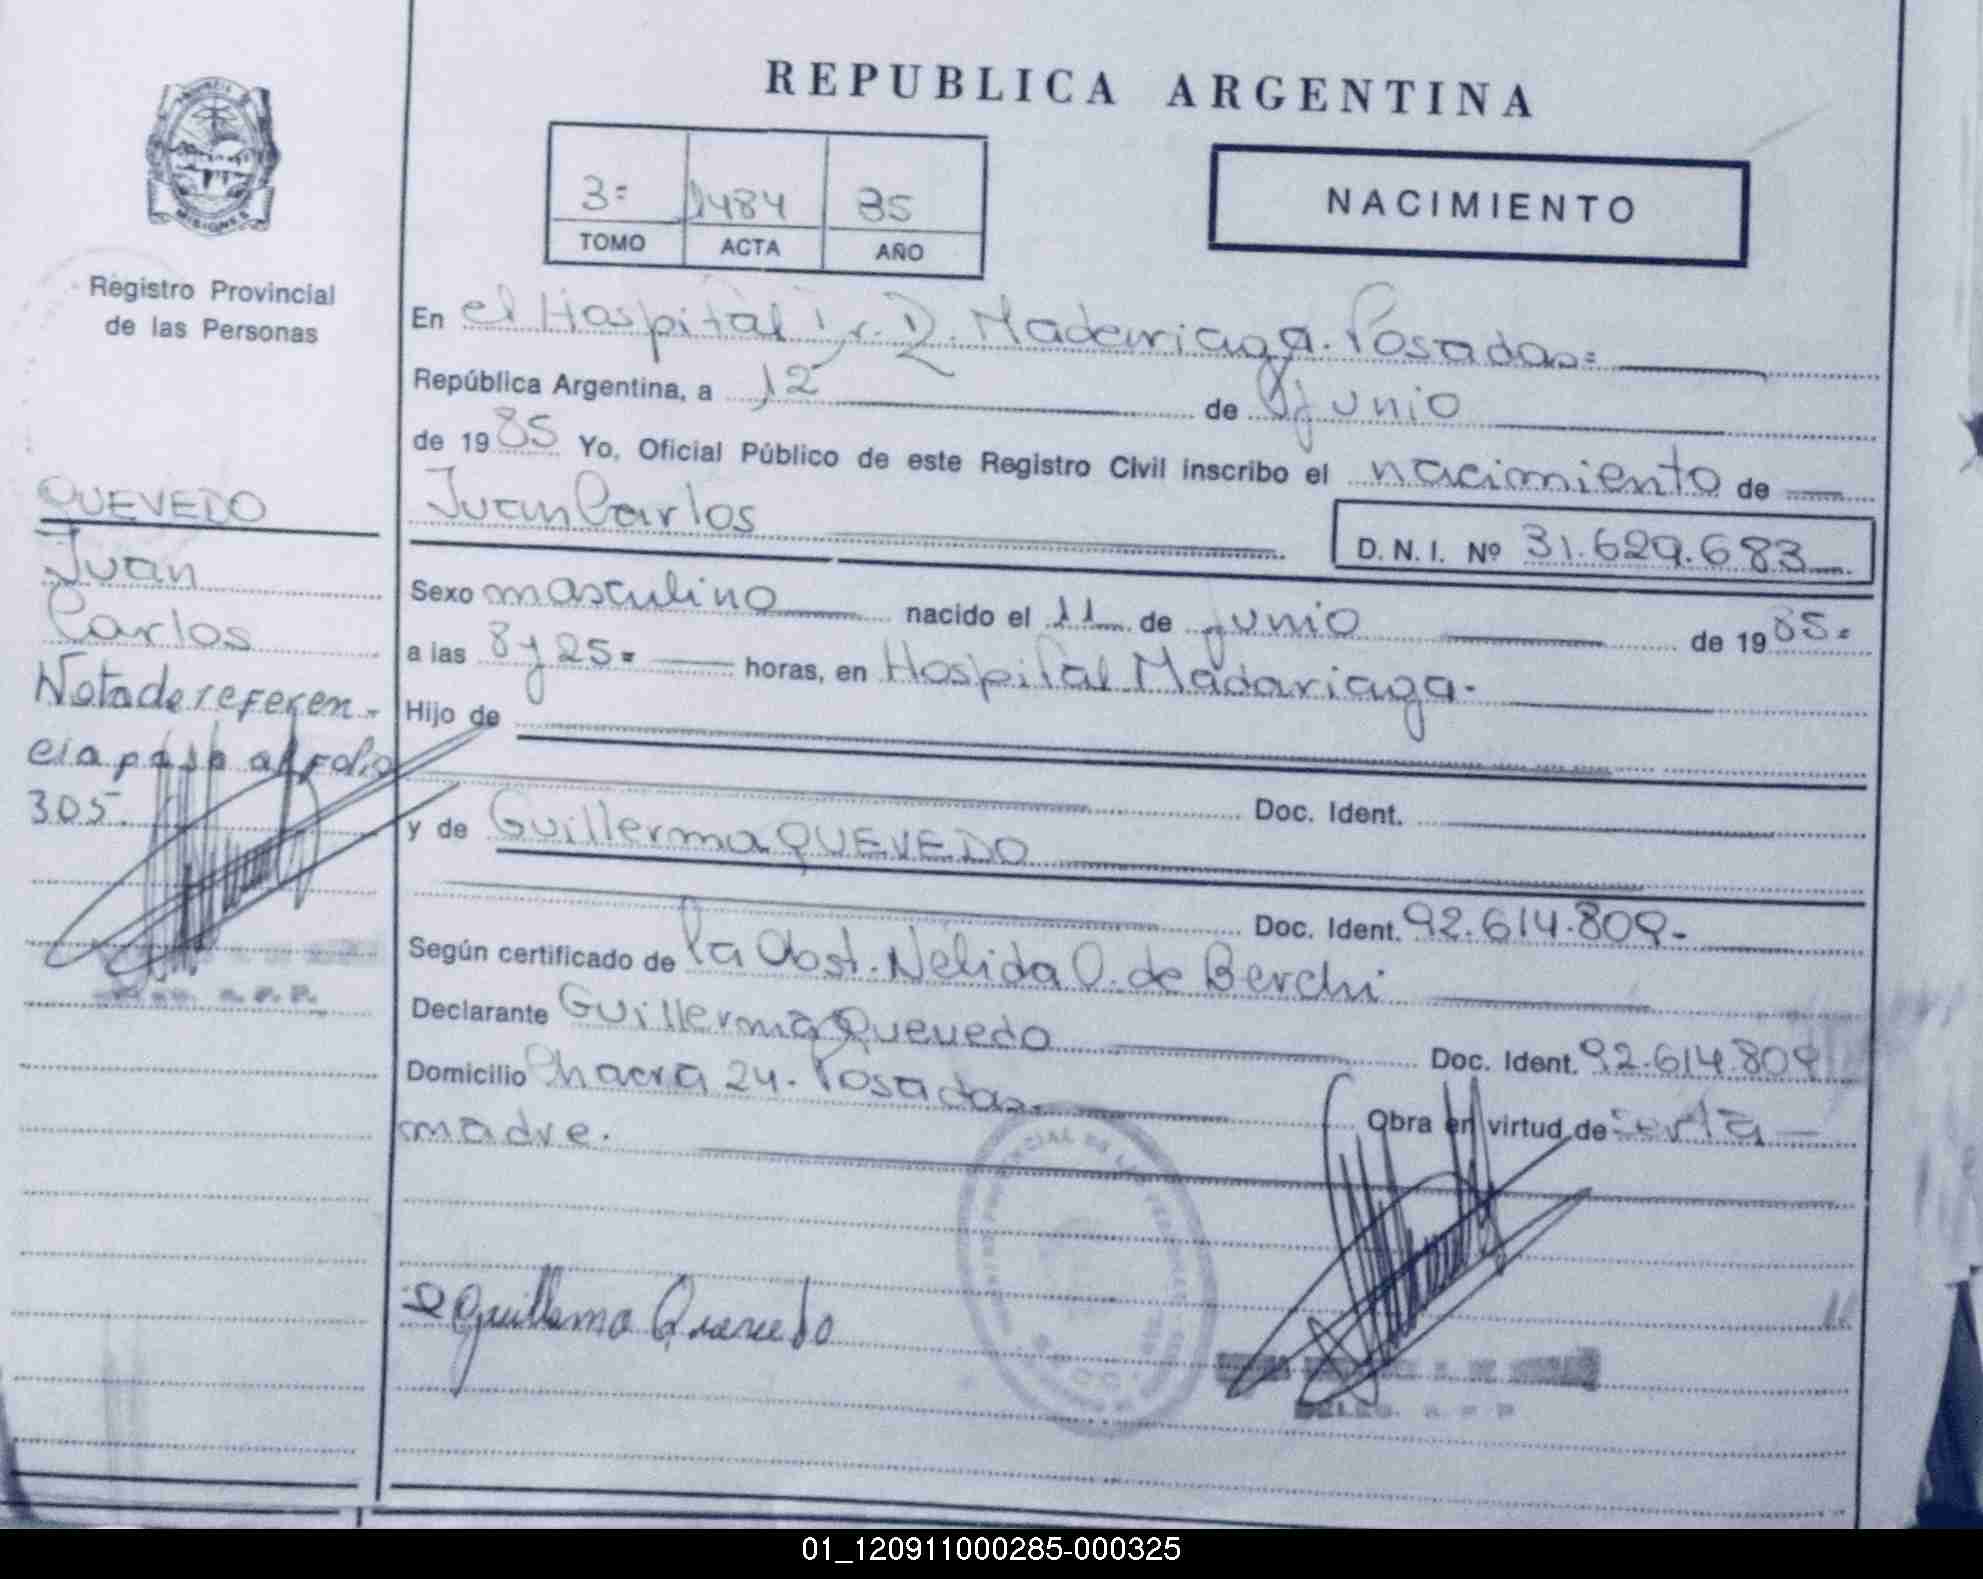 REPUBLICA ARGENTINA
3= 1484 85
TOMO ACTA AÑO
NACIMIENTO
MISIONES
Registro Provincial
de las Personas
QUEVEDO
Juan
Carlos
Nota de referen-
cia pasa al folio
305.
En el Hospital Dr. R. Madariaga. Posadas=
República Argentina, a 12 de junio
de 1985 Yo, Oficial Público de este Registro Civil inscribo el nacimiento de
Juan Carlos
D. N. I. Nº 31.629.683
Sexo masculino nacido el 11 de junio de 1985=
a las 8 y 25= horas, en Hospital Madariaga.
Hijo de
Doc. Ident.
y de Guillerma QUEVEDO
Doc. Ident. 92.614.809-
Según certificado de la Obst. Nélida O. de Berchi
Declarante Guillerma Quevedo
Doc. Ident. 92.614.809
Domicilio Chacra 24. Posadas.
Obra en virtud de ser la
madre.
Guillerma Quevedo
DELEG. R. P. P.
01_120911000285-000325